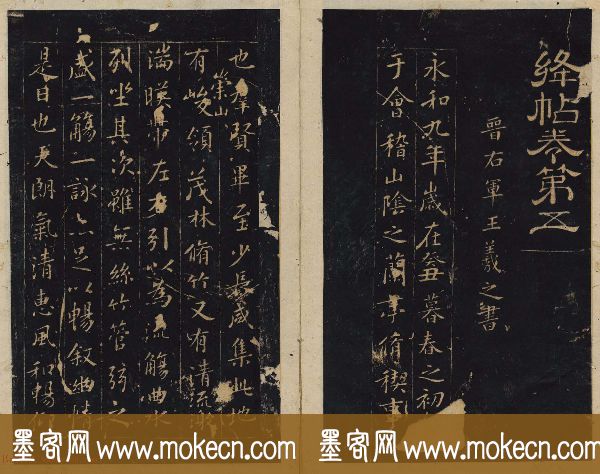 絳帖卷第五
晉右軍王羲之書
永和九年歲在癸丑暮春之初
于會稽山陰之蘭亭脩稧事
也羣賢畢至少長咸集此地
崇山
有峻領茂林脩竹又有清流激
湍暎帶左右引以為流觴曲水
列坐其次雖無絲竹管弦之
盛一觴一詠亦足以暢敘幽情
是日也天朗氣清惠風和暢仰
墨客网 www.mokecn.com 墨客网 www.mokecn.com